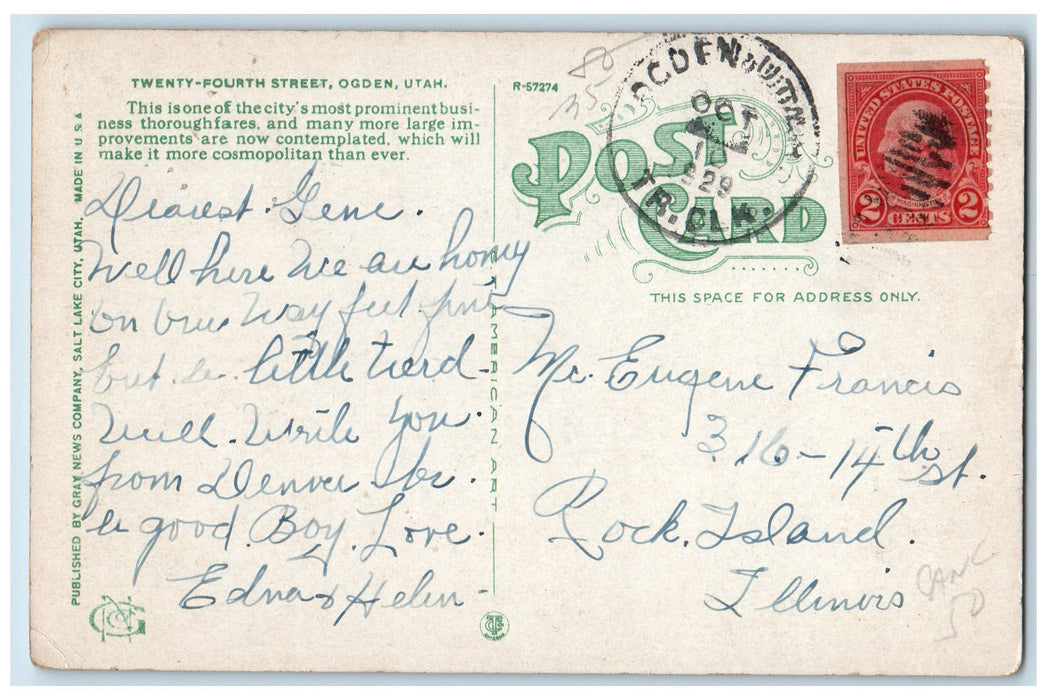 TWENTY-FOURTH STREET, OGDEN, UTAH.
This is one of the city's most prominent busi-
ness thoroughfares, and many more large im-
provements are now contemplated, which will
make it more cosmopolitan than ever.
PUBLISHED BY GRAY NEWS COMPANY, SALT LAKE CITY, UTAH. MADE IN U S A
Dearest. Gene.
Well here We are homeward
on our Way feel fine
but. a. little tierd.
Will. Write you.
from Denver be.
a good. Boy. Love.
Edna & Helen-
AMERICAN ART
R-57274
35 50
POST CARD
OGDEN UTAH
OCT
1929
TR. CLK.
UNITED STATES POSTAGE
WASHINGTON
2 CENTS 2
THIS SPACE FOR ADDRESS ONLY.
Mr. Eugene Francis
316-14th st.
Rock. Island.
Illinois
CANC
50